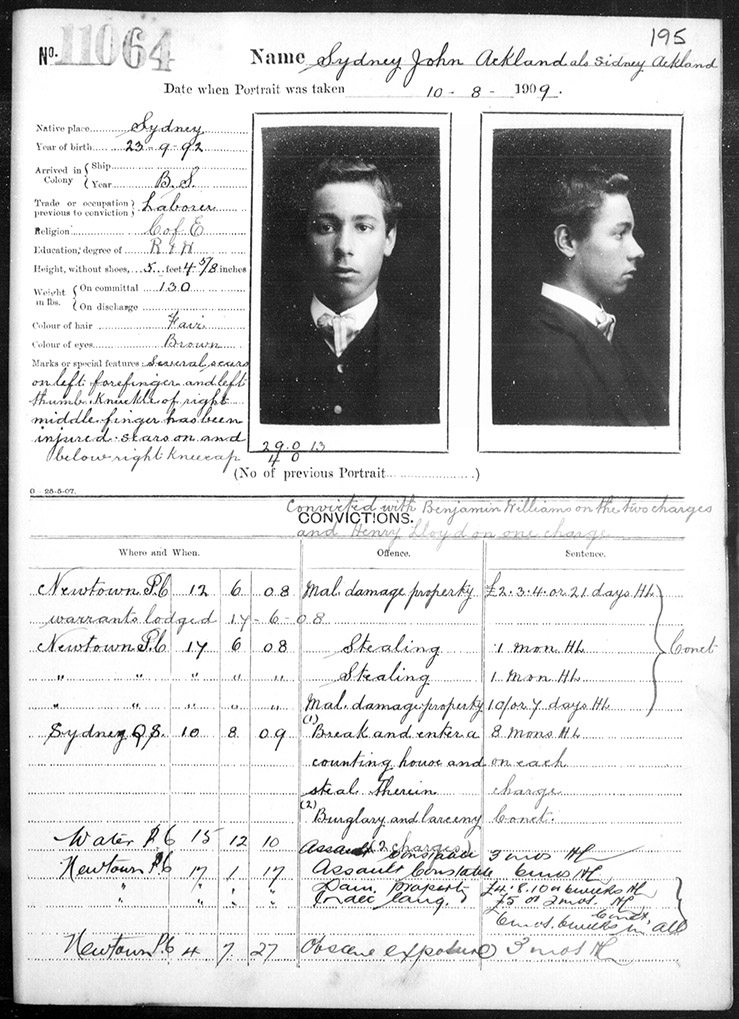 195
No. 11064 Name Sydney John Ackland als Sidney Ackland
Date when Portrait was taken 10-8-1909.
Native place Sydney
Year of birth 23-9-92
Arrived in Colony { Ship
Year B.S.
Trade or occupation previous to conviction } Laborer
Religion C of E
Education, degree of R & W
Height, without shoes, 5 feet 4 5/8 inches
Weight in lbs. { On committal 130
On discharge
Colour of hair Fair
Colour of eyes Brown
Marks or special features: Several scars
on left forefinger and left
thumb. Knuckle of right
middle finger has been
injured. Scars on and
below right kneecap
29.0 13
4 0
(No of previous Portrait )
G 25-5-07.
Convicted with Benjamin Williams on the two charges
CONVICTIONS.
and Henry Lloyd on one charge
Where and When. Offence. Sentence.
Newtown P.C 12 6 08 Mal. damage property £2.3.4. or 21 days HL
warrants lodged 17-6-08
Newtown P.C 17 6 08 Stealing 1 mon HL } Conct
" " " " " Stealing 1 Mon HL
" " " " " Mal. damage property 10/ or 7 days HL
Sydney Q.S. 10 8 09 (1) Break and enter a 8 Mons HL
counting house and on each
steal therein charge
(2) Burglary and larceny Conct.
Water P.C 15 12 10 Assault (2 charges) Constable 3 mos HL
Newtown P.C 17 1 17 Assault Constable 6 mos HL
" " " " Dam. property £4.8.10 or 6 weeks HL
" " " Indec lang. £5 or 2 mos. HL
Conct,
6 mos. 6 weeks in all
Newtown P.C 4 7 27 Obscene exposure 3 mos HL